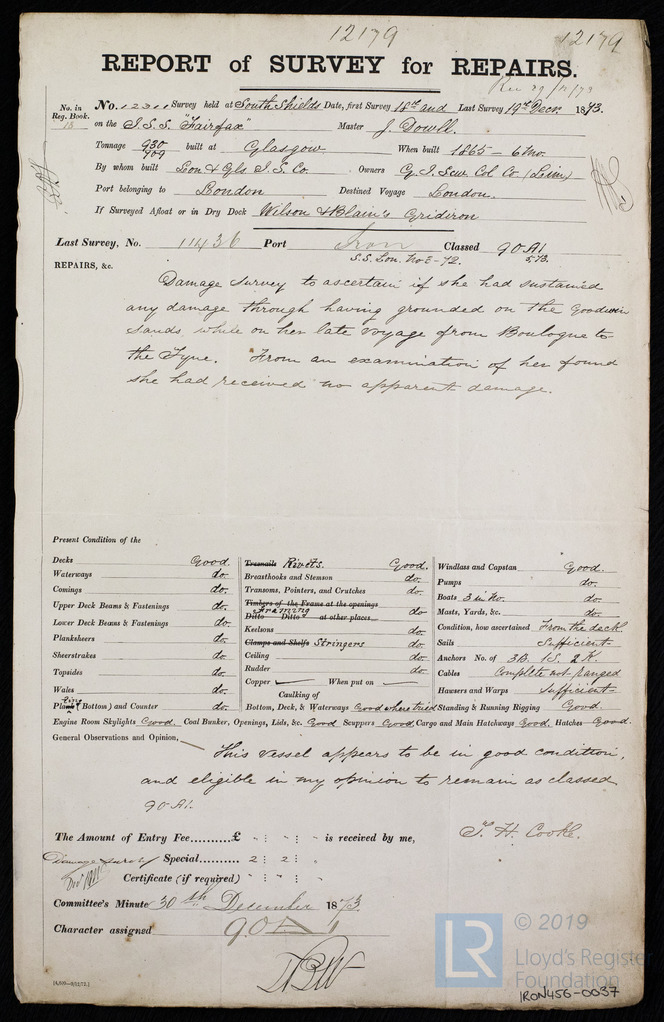 12179 12179
REPORT of SURVEY for REPAIRS.
Rec 29/12/73
No. in Reg. Book. 13
No. 12311 Survey held at South Shields Date, first Survey 18th and Last Survey 19th Decr. 1873.
on the I.S.S. "Fairfax" Master J. Dowell.
Tonnage 930 909 built at Glasgow When built 1865 - 6 mo.
By whom built Lon & Gls I.S. Co. Owners G. I. Scw. Col Co (Lim)
Port belonging to London Destined Voyage London.
If Surveyed Afloat or in Dry Dock Wilson & Blain's Gridiron
Last Survey, No. 11436 Port Iron Classed 90 A1
S.S. Lon. No 2-72. 5,73.
REPAIRS, &c.
Damage survey to ascertain if she had sustained
any damage through having grounded on the Goodwin
Sands while on her late voyage from Boulogne to
the Tyne. From an examination of her found
she had received no apparent damage.
Present Condition of the
Decks Good. Treenails Rivets. Good. Windlass and Capstan Good.
Waterways do. Breasthooks and Stemson do. Pumps do.
Comings do. Transoms, Pointers, and Crutches do. Boats 3 in No. do.
Upper Deck Beams & Fastenings do. Timbers of the Frame at the openings Masts, Yards, &c. do.
Framing
Lower Deck Beams & Fastenings do. Ditto Ditto at other places do Condition, how ascertained From the deck.
Planksheers do. Keelsons do. Sails Sufficient
Sheerstrakes do. Clamps and Shelfs Stringers do. Anchors No. of 3B. 1S. 2K.
Topsides do. Ceiling do. Cables Complete not ranged
Wales do. Rudder do. Hawsers and Warps Sufficient
Copper When put on
Caulking of
Plating (Bottom) and Counter do. Bottom, Deck, & Waterways Good where tried Standing & Running Rigging Good.
Engine Room Skylights Good. Coal Bunker, Openings, Lids, &c. Good Scuppers Good Cargo and Main Hatchways Good. Hatches Good.
General Observations and Opinion,
This vessel appears to be in good condition,
and eligible in my opinion to remain as classed
90 A1.
The Amount of Entry Fee..........£ " : " : " is received by me,
T. H. Cooke.
Damage survey Special.......... 2 : 2 : "
Certificate (if required) " : " : "
Committee's Minute 30th December 1873.
Character assigned 90 A 1
[4,000—9/12/72.]
LR
© 2019
Lloyd's Register
Foundation
IRON456-0037